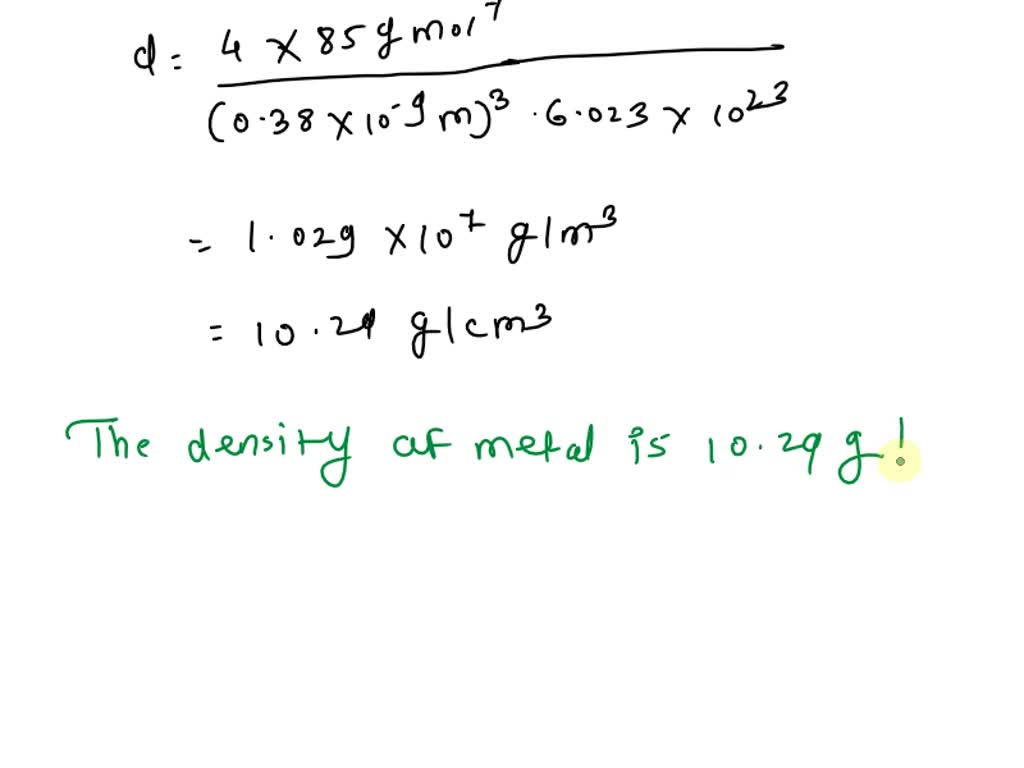 d = 4 × 85 g mol⁻¹
(0.38 × 10⁻⁹ m)³ · 6.023 × 10²³
= 1.029 × 10⁷ g/m³
= 10.29 g/cm³
The density of metal is 10.29 g/